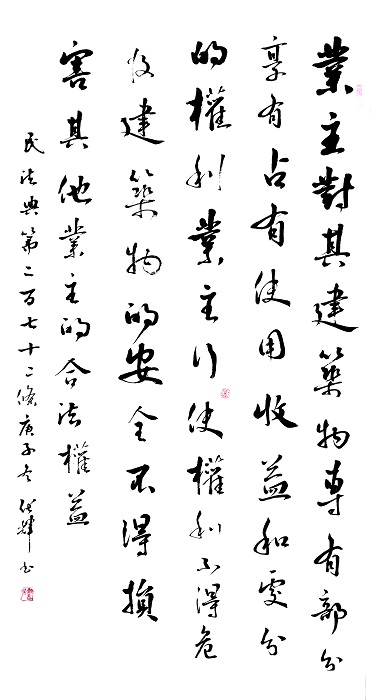 業主對其建築物專有部分
享有占有使用收益和處分
的權利業主行使權利不得危
及建築物的安全不得損
害其他業主的合法權益
民法典第二百七十二條庚子冬輝书